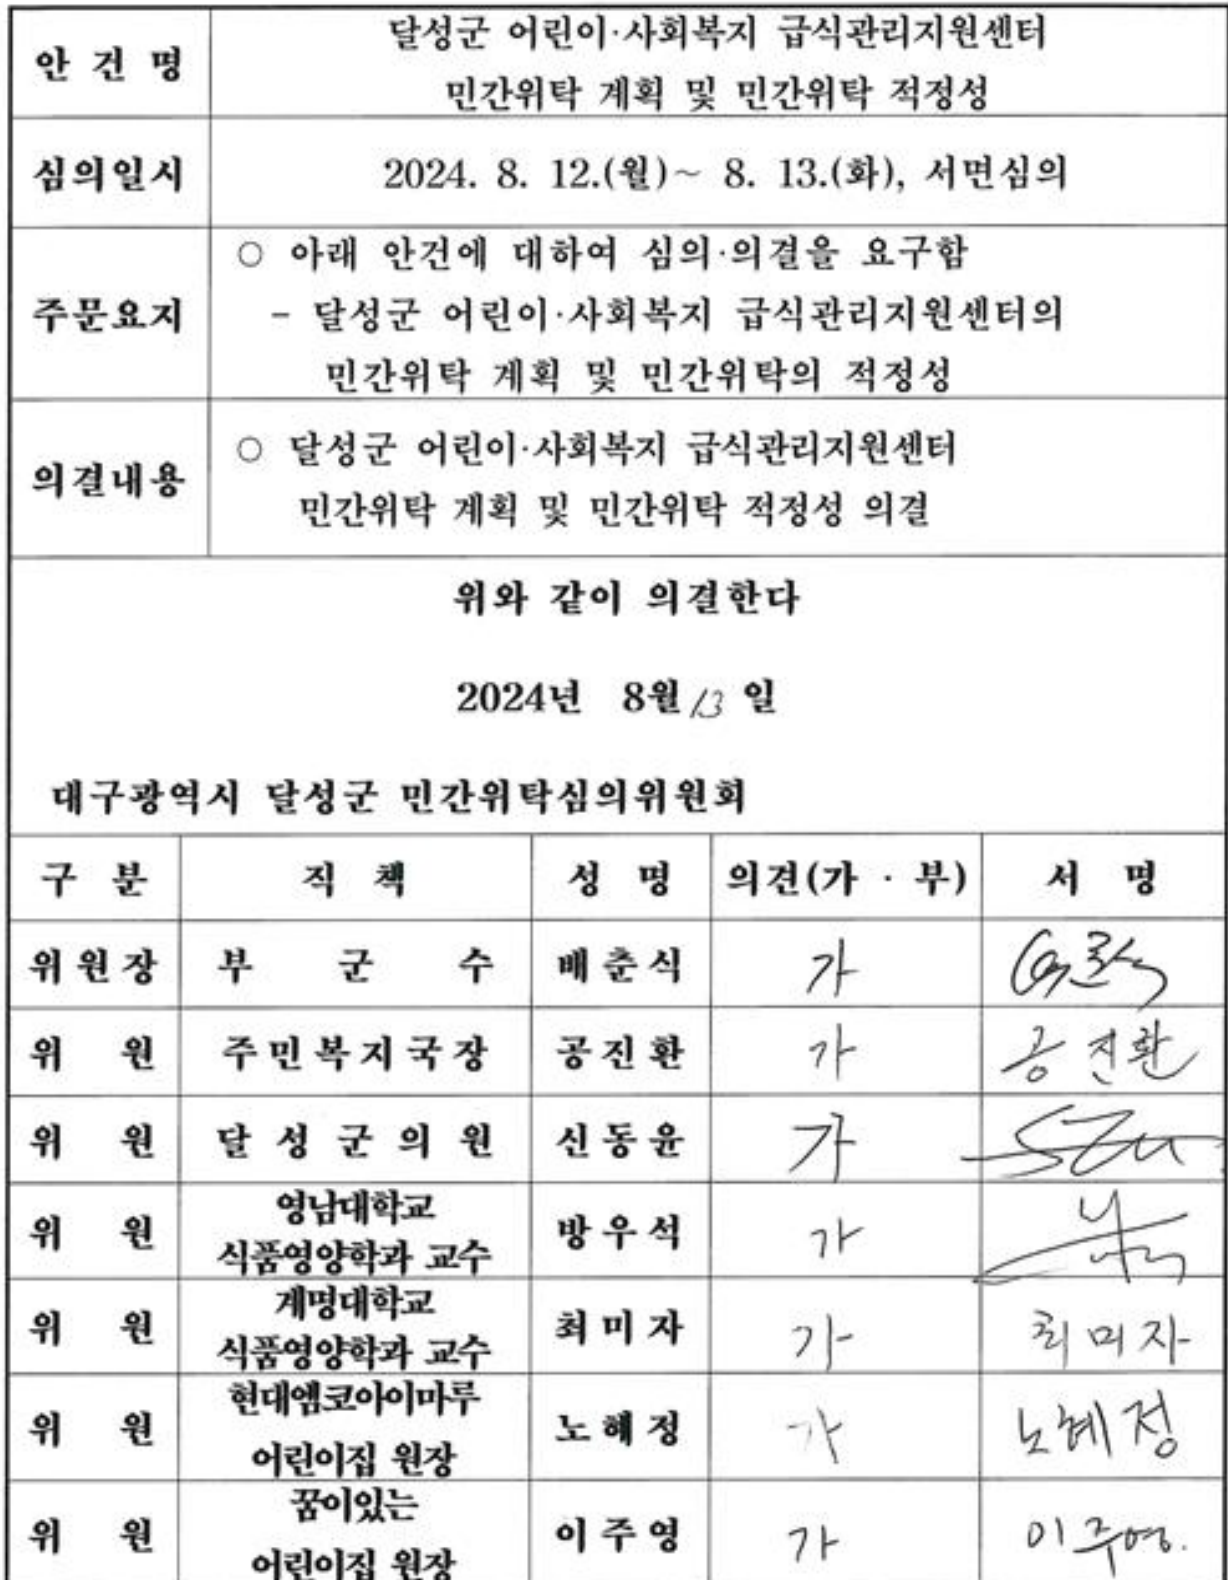 안 건 명
달성군 어린이·사회복지 급식관리지원센터
민간위탁 계획 및 민간위탁 적정성
심의일시
2024. 8. 12.(월)~ 8. 13.(화), 서면심의
주문요지
○ 아래 안건에 대하여 심의·의결을 요구함
- 달성군 어린이·사회복지 급식관리지원센터의
민간위탁 계획 및 민간위탁의 적정성
의결내용
○ 달성군 어린이·사회복지 급식관리지원센터
민간위탁 계획 및 민간위탁 적정성 의결
위와 같이 의결한다
2024년 8월 13 일
대구광역시 달성군 민간위탁심의위원회
구 분 직 책 성 명 의견(가 · 부) 서 명
위원장 부 군 수 배춘식 가
위 원 주민복지국장 공진환 가 공진환
위 원 달성군의원 신동윤 가
위 원 영남대학교
식품영양학과 교수 방우석 가
위 원 계명대학교
식품영양학과 교수 최미자 가 최미자
위 원 현대엠코아이마루
어린이집 원장 노혜정 가 노혜정
위 원 꿈이있는
어린이집 원장 이주영 가 이주영.